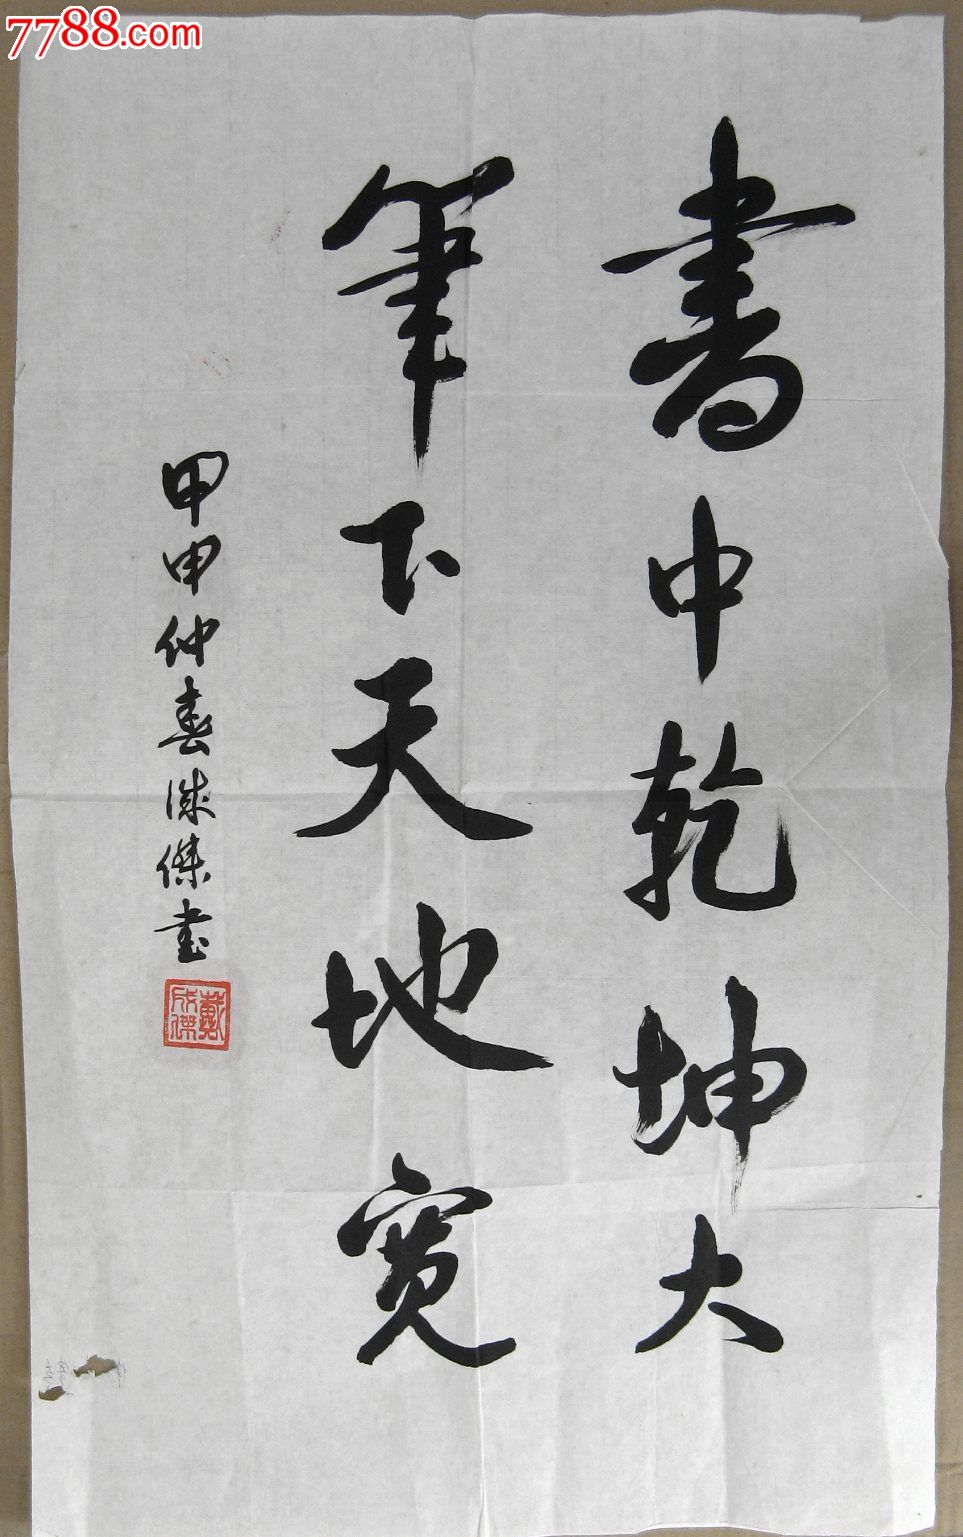 7788.com
書中乾坤大
筆下天地寬
甲申仲春誠傑書
戴誠傑